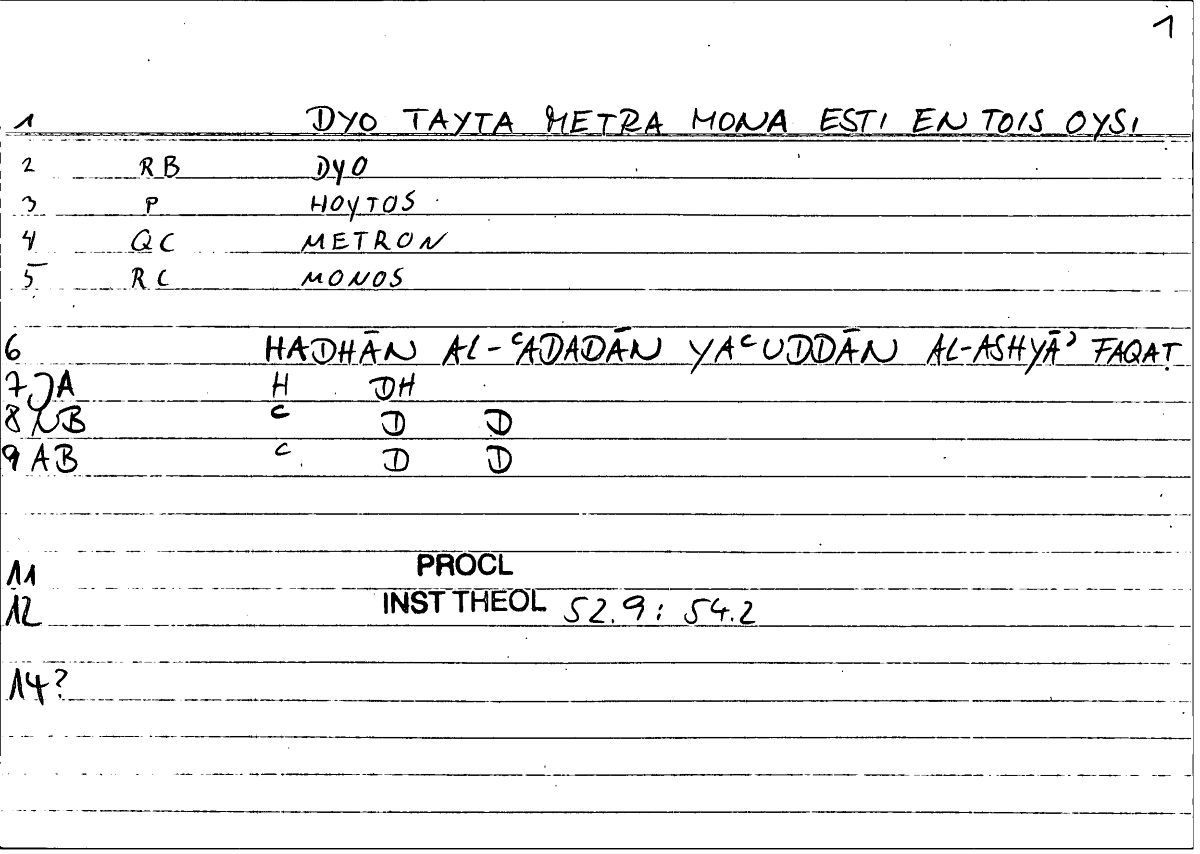 1
1 DYO TAYTA METRA MONA ESTI EN TOIS OYSI
2 RB DYO
3 P HOYTOS
4 QC METRON
5 RC MONOS
6 HADHĀN AL-ʿADADĀN YAʿUDDĀN AL-ASHYĀʾ FAQAT
7 JA H DH
8 NB ʿ D D
9 AB ʿ D D
11 PROCL
12 INST THEOL 52.9: 54.2
14?